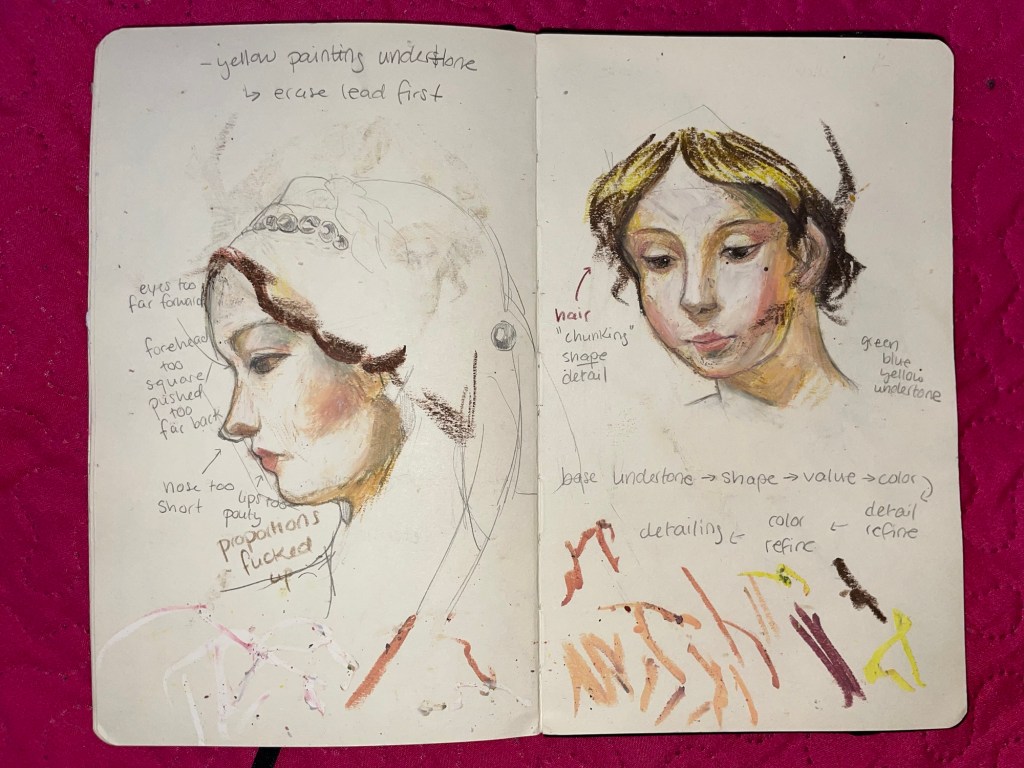 - yellow painting undertone
↳ erase lead first
eyes too
far forward
forehead
too
square/
pushed
too
far back
nose too
short
lips too
pouty
proportions
fucked
up
hair
"chunking"
shape
detail
green
blue
yellow
undertone
base undertone → shape → value → color
detail
refine
color
refine
detailing